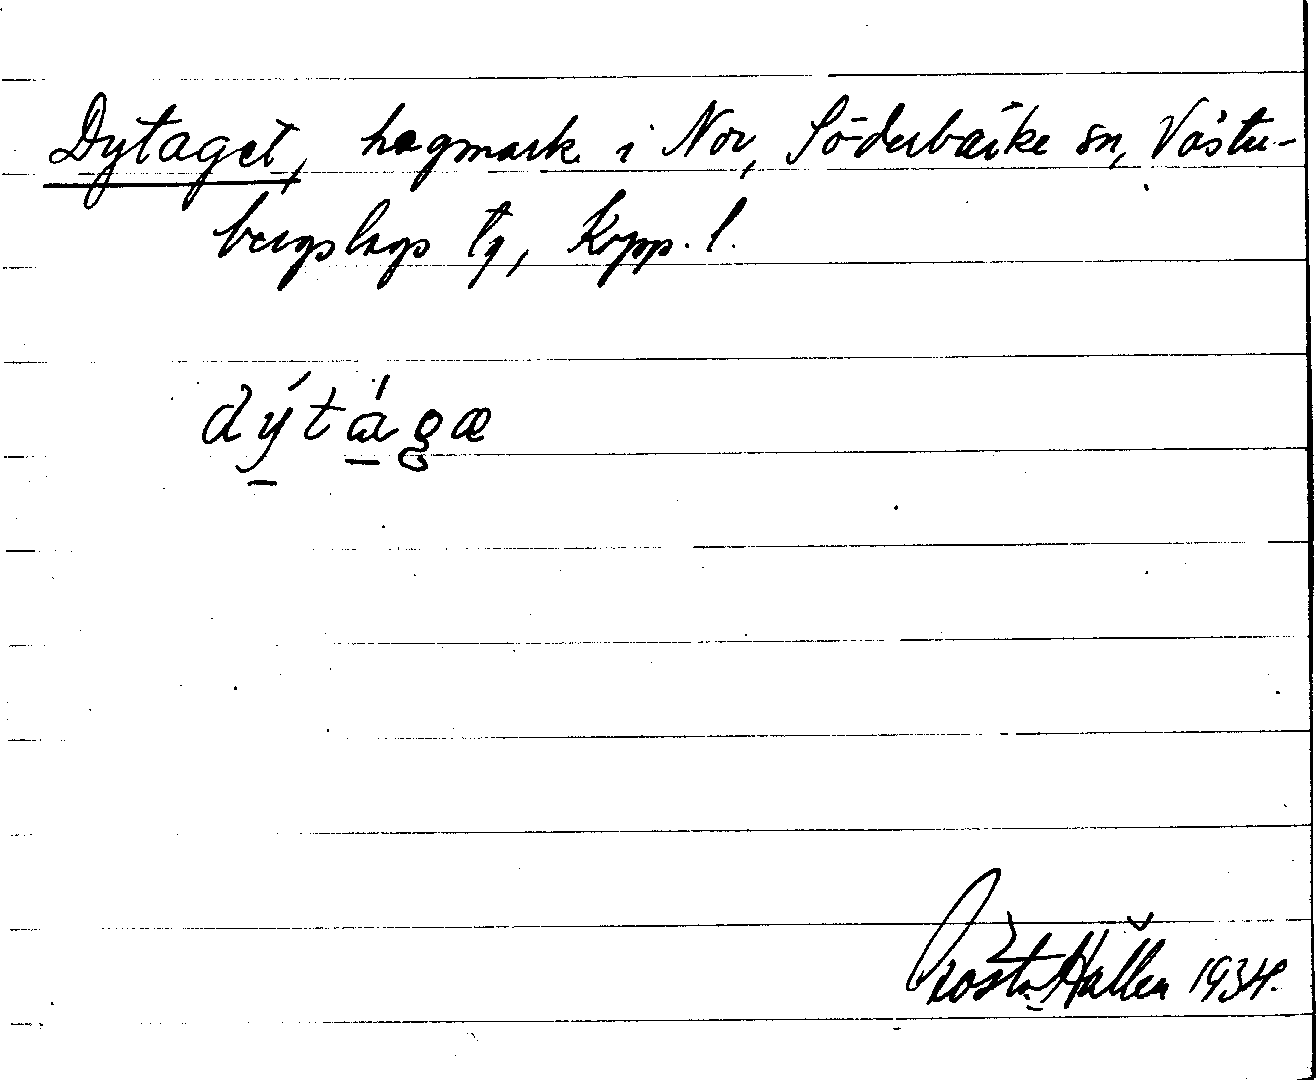 Dytaget, hagmark i Nor, Söderbärke sn, Väster-
bergslags tg, Kopp. l.
dýtágæ
Gösta Hallén 1934.